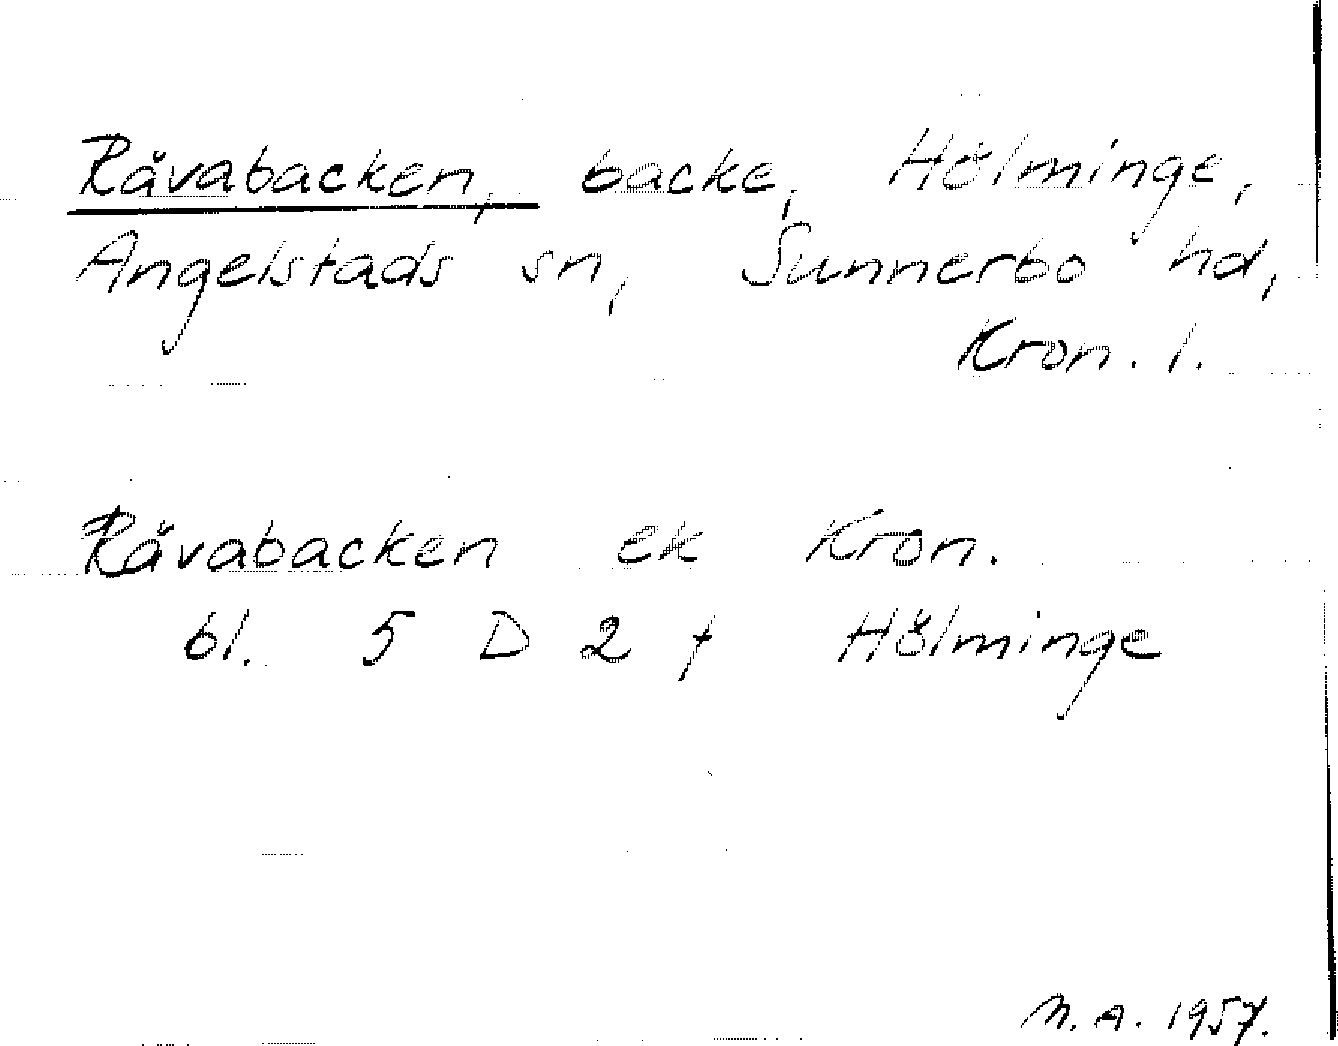 Råvabacken, backe, Hölminge,
Angelstads sn, Sunnerbo hd,
Kron. l.
Råvabacken ek Kron.
bl. 5 D 2 f Hölminge
M.A. 1957.